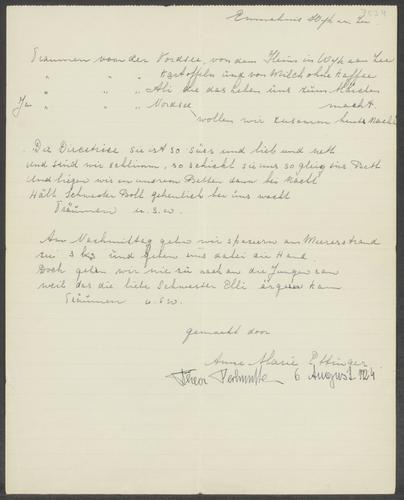 Emmahuis Wyk aan Zee
Träumen von der Nordsee, von dem Heim in Wyk aan Zee
" " " Kartoffeln und von Milch ohne Kaffee
" " " Ali die das leben uns zum Märchen macht
Ja " " Nordsee
wollen wir zusammen heute Nacht
Die Directrise sie ist so süss und lieb und nett
und sind wir schlimm, so schickt sie uns so gleig ins Bett
Und liegen wir in unserem Betten dann bei Nacht
Hält Schwester Bolt gehenlich bei uns wacht
Träumen u.s.w.
Am Nachmittag gehen wir spazieren am Meeresstrand
zu 3 bis und geben uns dabei die Hand
Doch gehen wir nie zu nach an die Jungen ran
weil das die liebe Schwester Elli ärgern kann
Träumen u.s.w.
gemacht door
Anne-Marie Ettinger
6 August 1924